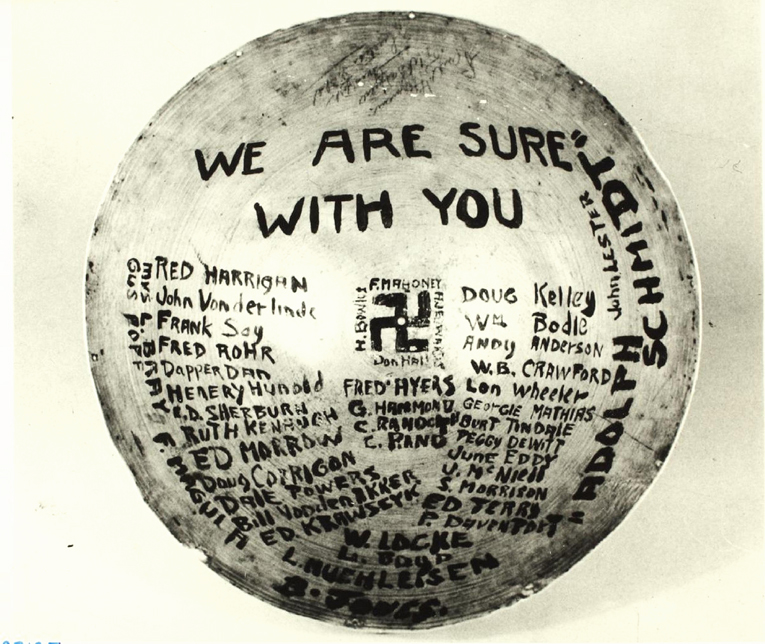 WE ARE SURE
WITH YOU
"ADOLPH SCHMIDT"
John LESTER
RED HARRIGAN
John Vonderlinde
FRANK Say
FRED ROHR
DAPPER DAN
HENERY Hunold
L.D. SHERBURN
RUTH KENAUGH
ED MORROW
DOUG CORRIGAN
DALE POWERS
Bill VonderAKKER
ED. KRAWSCYK
GUS POPP
F. MAGULA
F. MAHONEY
Don Hall
FRED HYERS
G. HAMMOND
C. RAND
DOUG Kelley
Wm Bodle
ANDY ANDERSON
W.B. CRAWFORD
Len Wheeler
GEORGIE MATHIAS
BURT TINDALE
PEGGY DEWITT
June EDDY
U. McNiell
S. MORRISON
ED TERRY
P. DAVENPORT
W. LOCKE
L. BOYD
L. MUEHLEISEN
B. JONES.